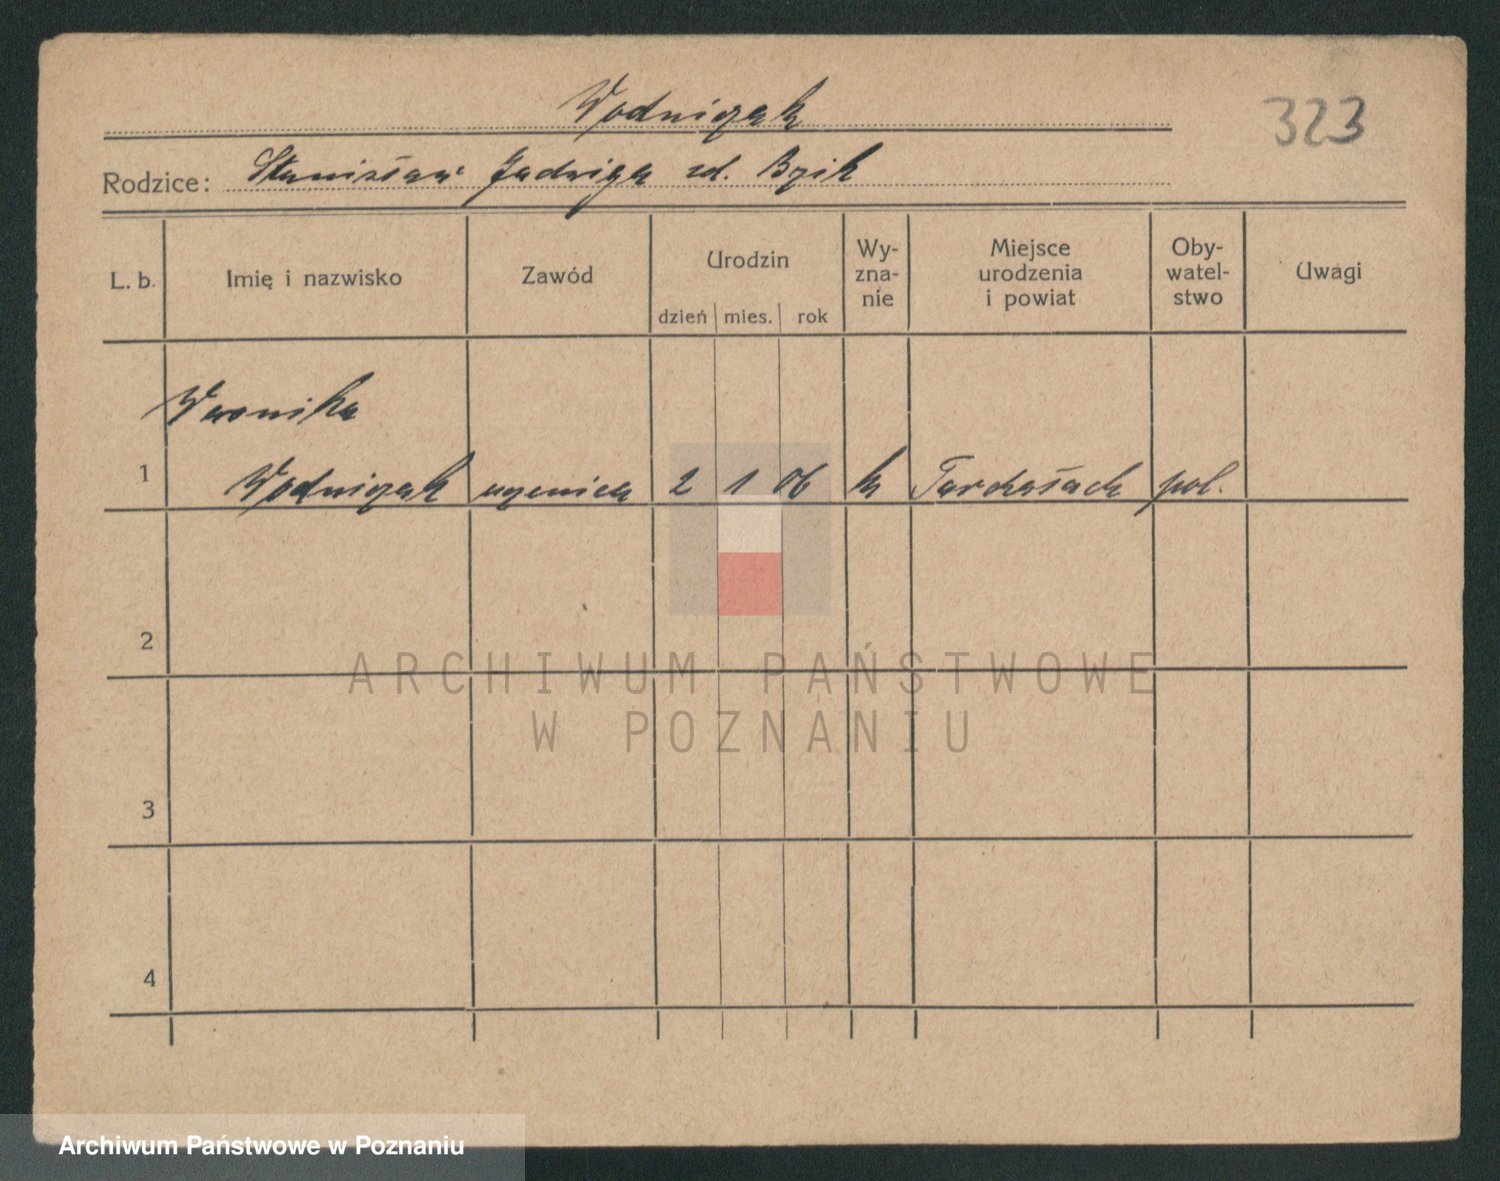 Wodniczak
323
Rodzice: Stanisław Jadwiga zd. Bzik
L. b.
Imię i nazwisko
Zawód
Urodzin
dzień mies. rok
Wy-
zna-
nie
Miejsce
urodzenia
i powiat
Oby-
watel-
stwo
Uwagi
Weronika
1 Wodniczak uczenica 2 1 06 k Tarchałach pol.
2
3
4
ARCHIWUM PAŃSTWOWE
W POZNANIU
Archiwum Państwowe w Poznaniu